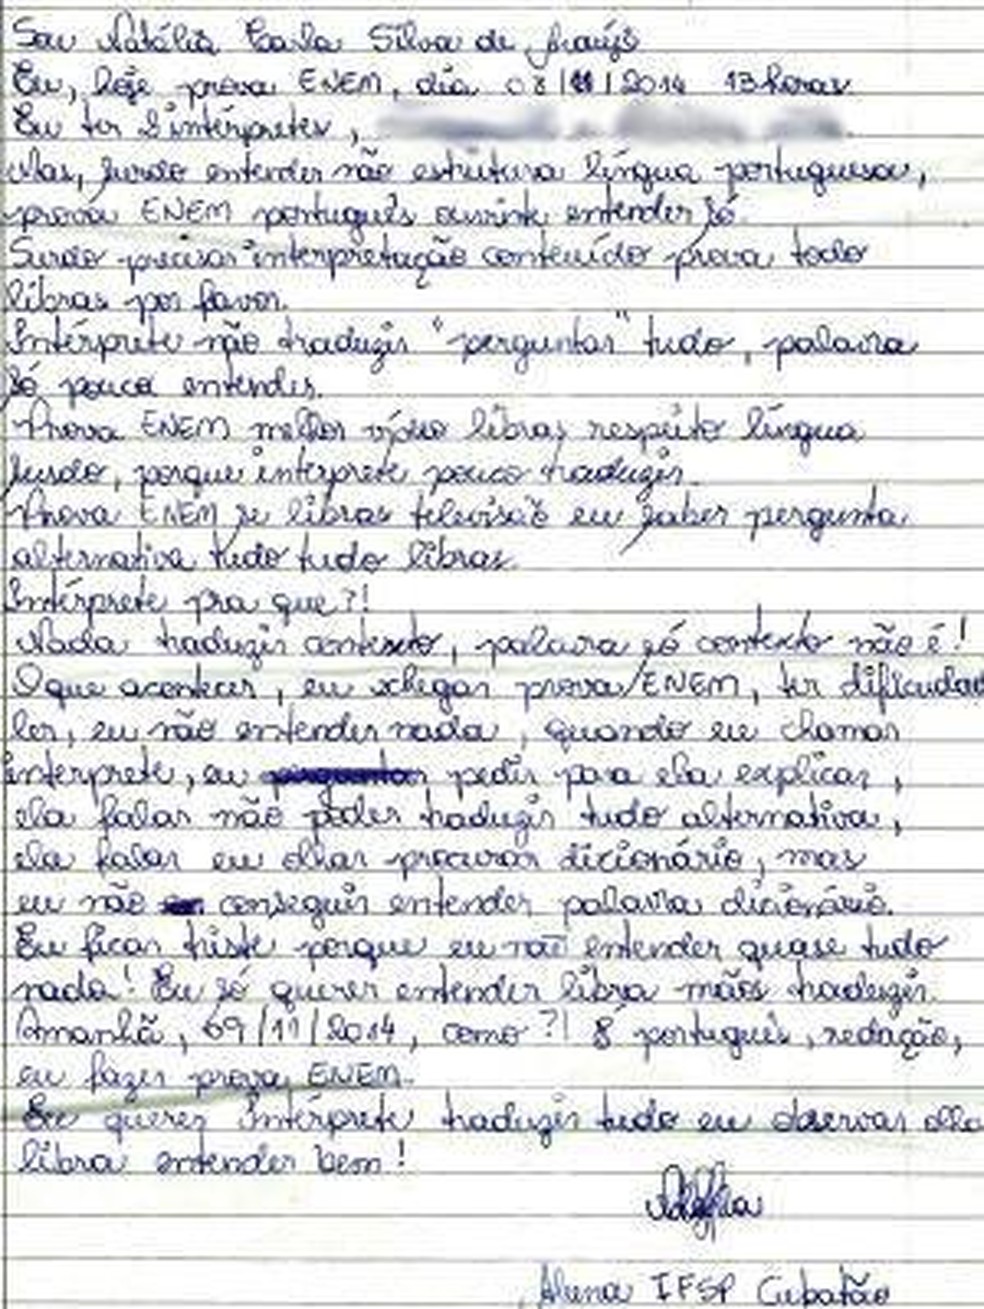 Sou Natália Carla Silva de Araújo
Eu, hoje prova ENEM, dia 08/11/2014 13 horas
Eu ter 2 intérpretes,
Mas, surdo entender não estrutura língua portuguesa,
prova ENEM português ouvinte entender só.
Surdo precisar interpretação conteúdo prova todo
libras por favor.
Intérprete não traduzir "perguntas" tudo, palavra
só pouca entender.
Prova ENEM melhor vídeo libras respeito língua
surdo, porque intérprete pouco traduzir.
Prova ENEM se libras televisão eu saber pergunta
alternativa tudo tudo libras.
Intérprete pra que?!
Nada traduzir contexto, palavra só contexto não é!
O que acontecer, eu chegar prova/ENEM, ter dificudad
ler, eu não entender nada, quando eu chamar
interprete, eu pedir para ela explicar,
ela falar não poder traduzir tudo alternativa,
ela falar eu olhar procurar dicionário, mas
eu não conseguir entender palavra dicionário.
Eu ficar triste porque eu não entender quase tudo
nada! Eu só querer entender libra mãos traduzir.
Amanhã, 09/11/2014, como?! É português, redação,
eu fazer prova ENEM.
Eu querer Intérprete traduzir tudo eu observar olha
libra entender bem!
Aluna IFSP Cubatão